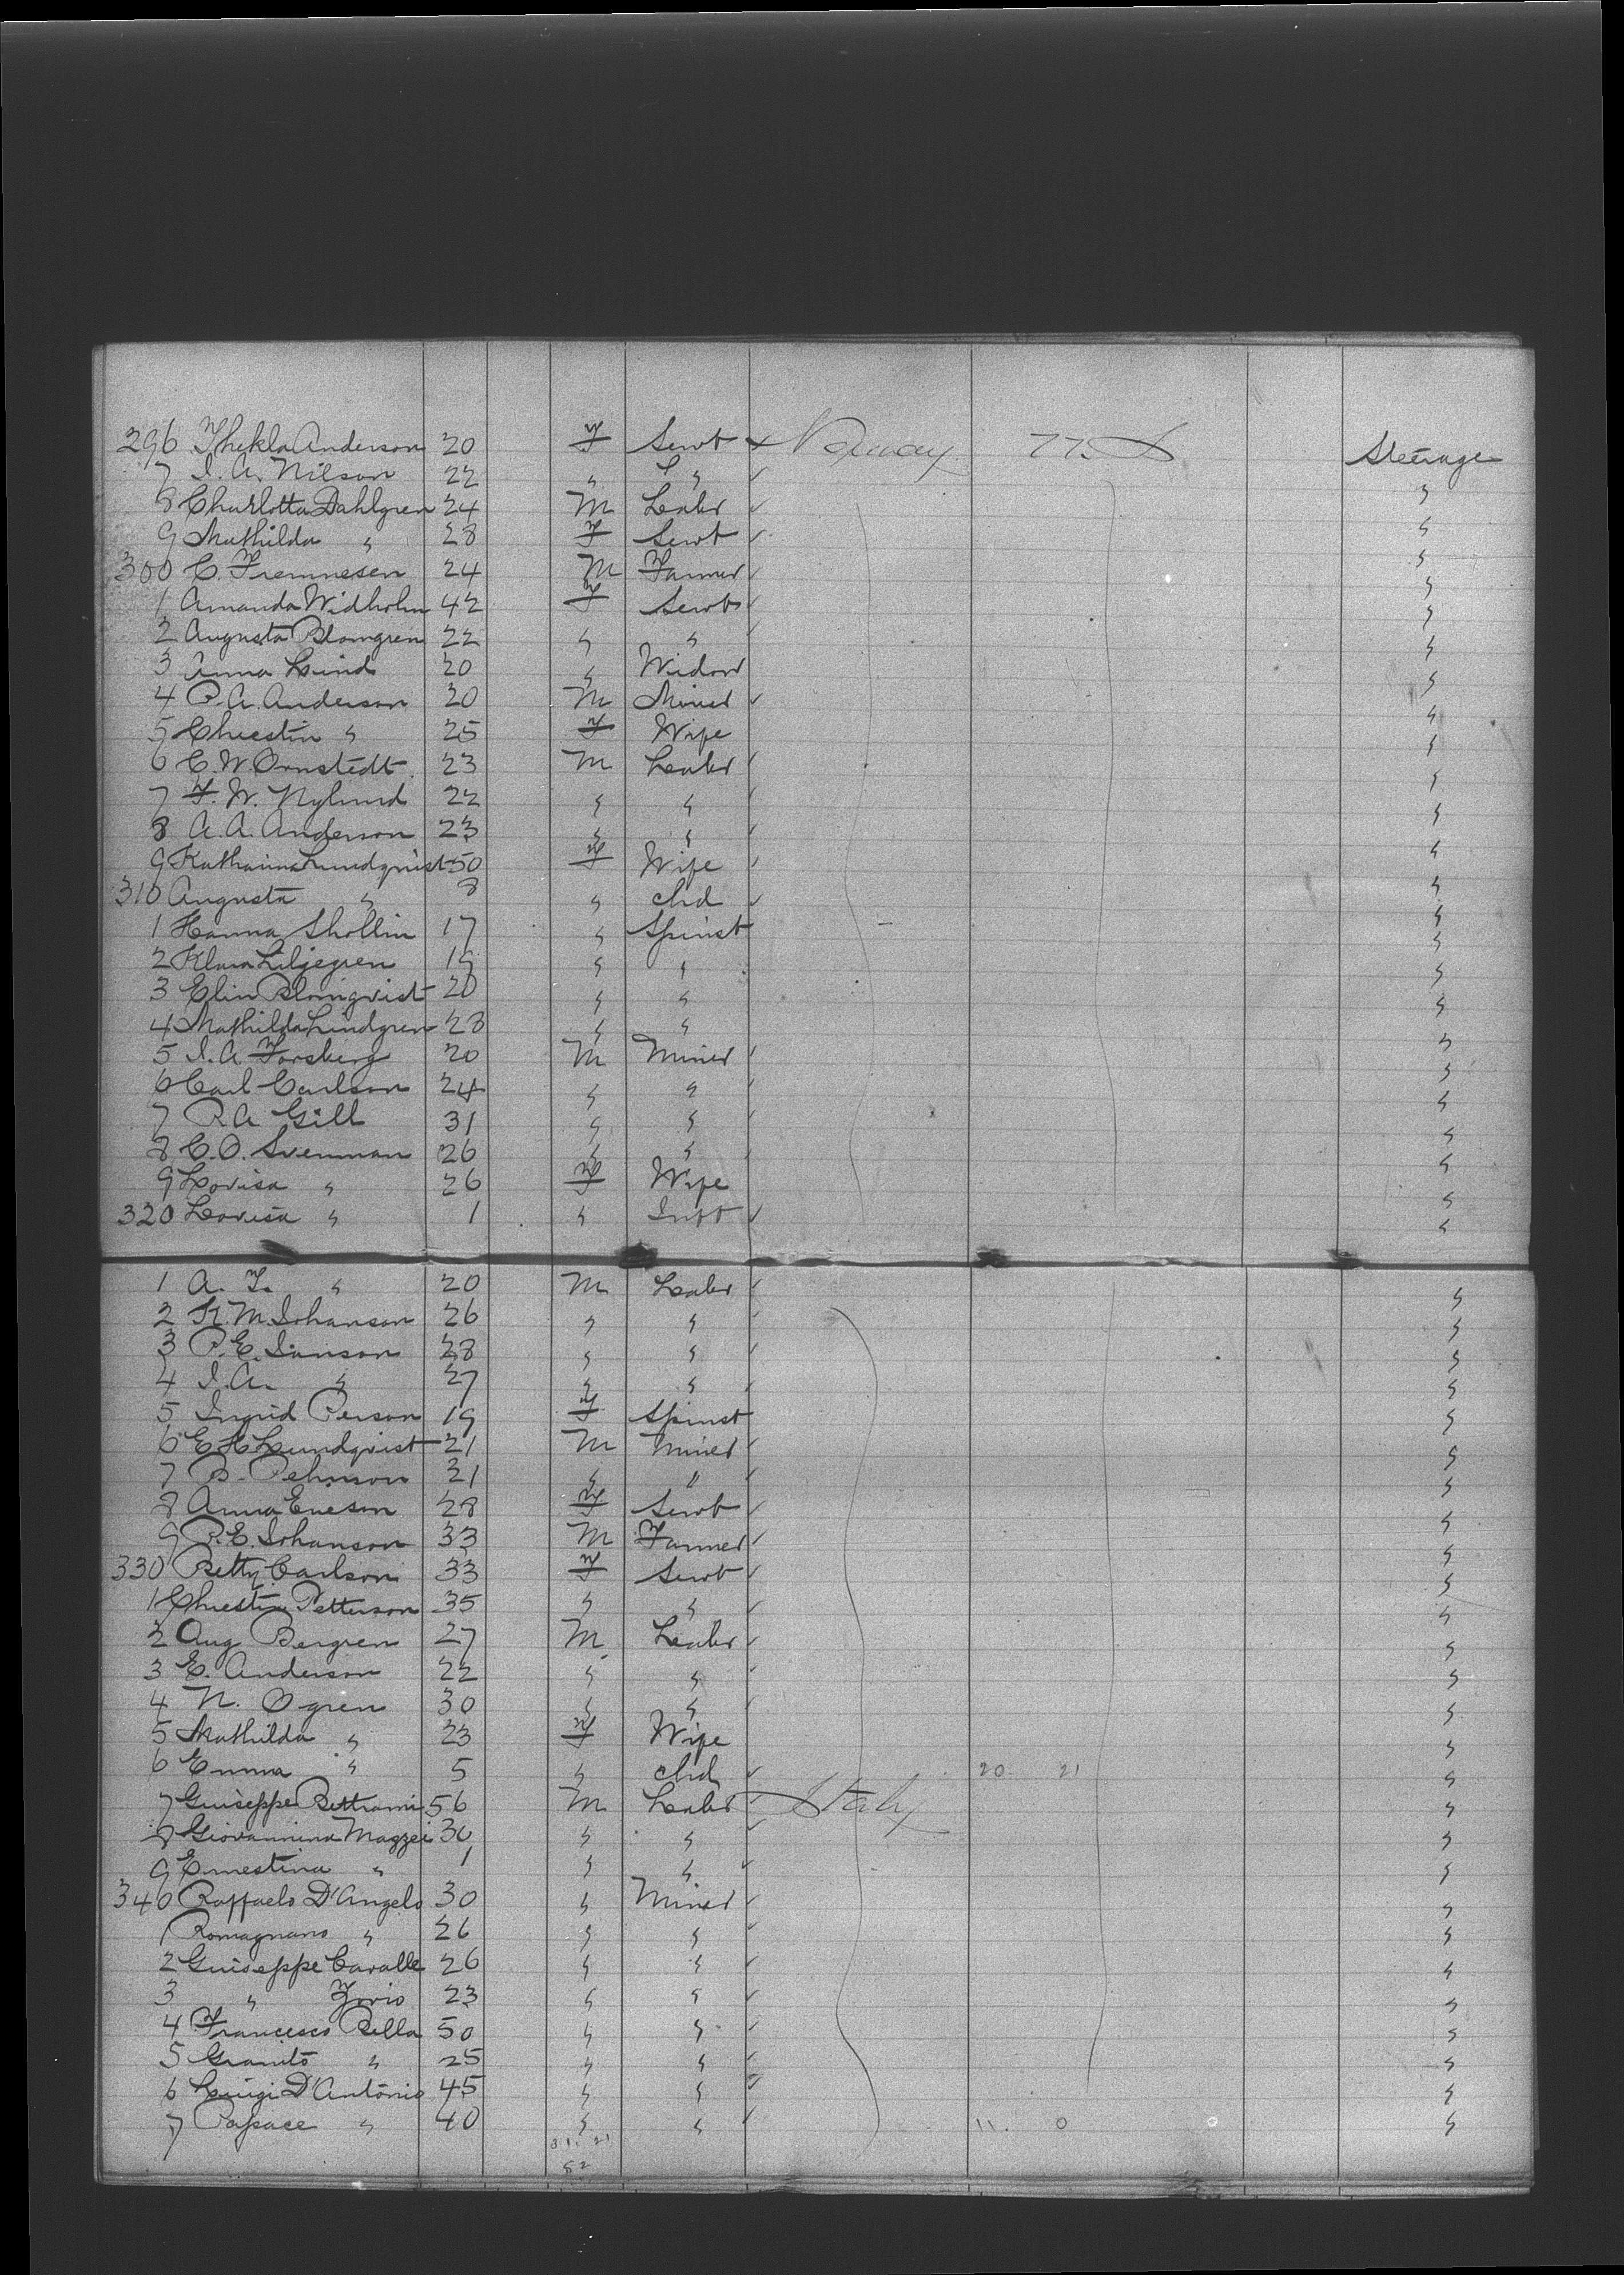 296 Thekla Anderson 20 F Servt Norway U.S. Steerage
7 I. A. Nilson 22 " " "
8 Charlotta Dahlgren 24 M Labr "
9 Mathilda " 28 F Servt "
300 C. Fremnesen 24 M Farmer "
1 Amanda Widholm 42 F Servt "
2 Augusta Blomgren 22 " " "
3 Anna Lind 20 " Widow "
4 P. A. Anderson 20 M Miner "
5 Chrestin " 25 F Wife "
6 C. W. Ornstedt 23 M Labr "
7 F. W. Nylund 22 " " "
8 A. A. Anderson 23 " " "
9 Katharina Lundqvist 50 F Wife "
310 Augusta " 8 " chd "
1 Hanna Shollin 17 " Spinst "
2 Klara Liljegren 19 " " "
3 Elin Blomqvist 20 " " "
4 Mathilda Lindgren 28 " " "
5 I. A. Forsberg 20 M Miner "
6 Carl Carlson 24 " " "
7 P. A. Gill 31 " " "
8 C. O. Svenman 26 " " "
9 Lovisa " 26 F Wife "
320 Lovisa " 1 " Inft "
1 A. F. " 20 M Labr "
2 K. M. Johanson 26 " " "
3 P. E. Janson 28 " " "
4 I. A. " 27 " " "
5 Ingrid Person 19 F Spinst "
6 E H Lundqvist 21 M Miner "
7 B. Pehrson 21 " " "
8 Anna Ericson 28 F Servt "
9 P. E. Johanson 33 M Farmer "
330 Betty Carlson 33 F Servt "
1 Chrestin Petterson 35 " " "
2 Aug Bergren 27 M Labr "
3 E. Anderson 22 " " "
4 N. Ogren 30 " " "
5 Mathilda " 23 F Wife "
6 Emma " 5 " chd 20 21 "
7 Guiseppe Bettrami 56 M Labr Italy "
8 Giovannina Mazzei 30 " " "
9 Ernestina " 1 " " "
340 Raffaelo D'Angelo 30 " Miner "
1 Romagnano " 26 " " "
2 Guiseppe Cavalle 26 " " "
3 " Fovio 23 " " "
4 Francesco Bella 50 " " "
5 Granito " 25 " " "
6 Luigi D'Antonio 45 " " "
7 Papace " 40 " " 11. 0 "
31. 21
52